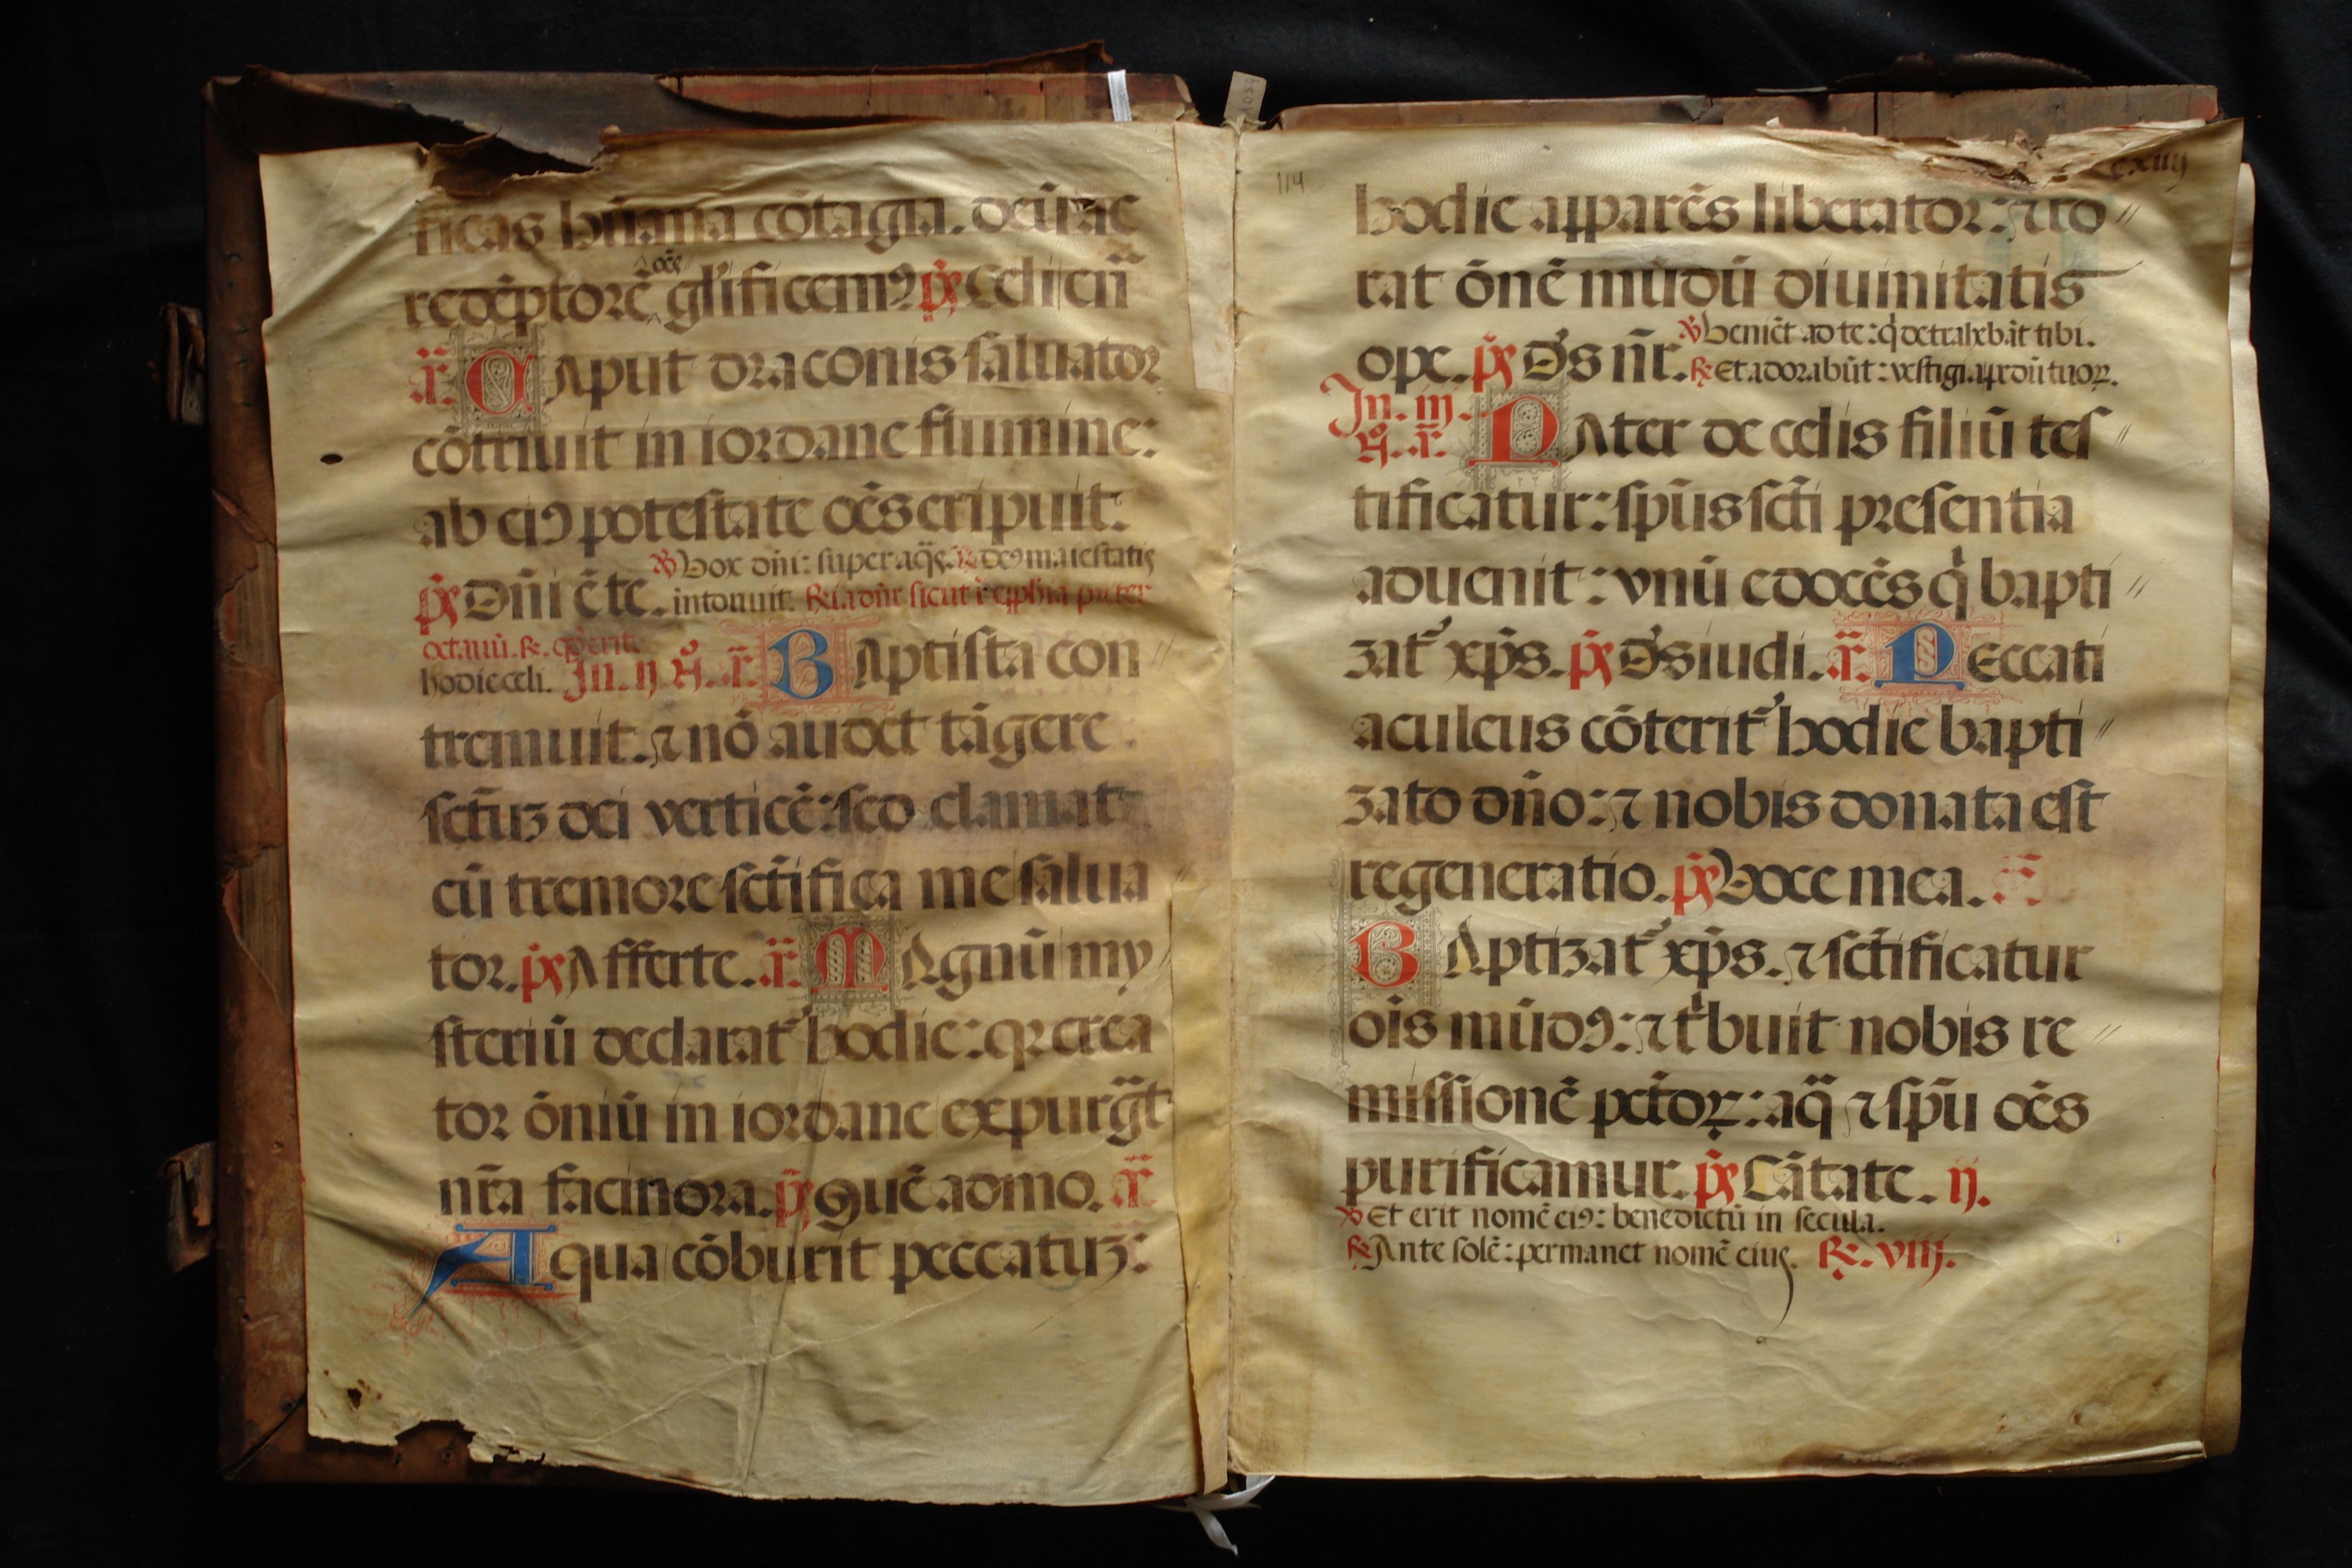 ficas hūana cōtagia. deū ac
oēs
redēptorē gl'ificemꝰ p̄s Celi en̄
ā. CAput draconis saluator
cōtriuit in iordane flumine:
ab eiꝰ potestate oēs eripuit.
℣ Vox dn̄i: super aq̄s. ℟ deꝰ maiestatis
p̄s Dn̄i ē te. intonuit.
octauū. ℟. q̄ erit.
hodie celi. In. ij. N̊. ā. BAptista con
tremuit. ⁊ nō audet tāgere
sctūȝ dei verticē: sed clamat
cū tremore sctīfica me salua
tor. p̄s Afferte. ā. MAgnū my
steriū declarat᷑ hodie: qꝛ crea
tor ōniū in iordane expurgāt
nr̄a facinora. p̄s Quēadmo. ā
Aqua cōburit peccatuȝ:
114 cxiiij
hodie apparēs liberator: ⁊ ro
rat ōnē mūdū diuinitatis
℣ Veniēt ad te: q̇ detrahebāt tibi.
ope. p̄s D's nr̄. ℟ Et adorabūt: vestigia pedū tuoꝝ.
In. iij.
N̊. ā. PAter de celis filiū tes
tificatur: sp̄us sctī presentia
aduenit: vnū edocēs q̇ bapti
zat᷑ xp̄s. p̄s D's iudi. ā. Peccati
aculeus cōterit᷑ hodie bapti
zato dn̄o: ⁊ nobis donata est
regeneratio. p̄s Voce mea. ā
BAptizat᷑ xp̄s. ⁊ sctīficatur
ois mūdꝰ: ⁊ tͥbuit nobis re
missionē pctōꝝ: aq̄ ⁊ sp̄u oēs
purificamur. p̄s Cātate. ij.
℣ Et erit nomē eiꝰ: benedictū in secula.
℟ Ante solē: permanet nomē eius. ℟. VIIJ.